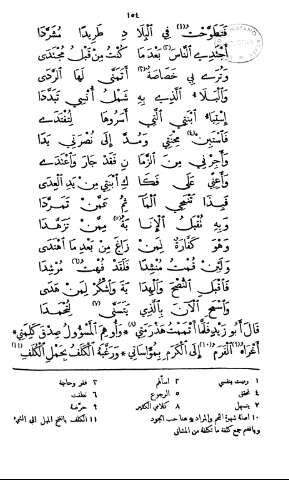 ١٥٤
فَتَطَوَّحْتُ (١) فِي الْبِلَا دِ طَرِيدًا مُشَرَّدَا
أَجْتَدِي النَّاسَ بَعْدَمَا كُنْتُ مِنْ قَبْلُ مُجْتَدَى
وَتُرَى بِي خَصَاصَةٌ أَتَمَنَّى لَهَا الرَّدَى
وَالْبَلَاءُ الَّذِي بِهِ شَمْلُ أُنْسِي تَبَدَّدَا
إِسْتِبَاءُ ابْنَتِي الَّتِي أَسَرُوهَا لِتُفْتَدَى
فَاسْتَبِنْ مِحْنَتِي وَمُدَّ إِلَى نُصْرَتِي يَدَا
وَأَجِرْنِي مِنَ الزَّمَا نِ فَقَدْ جَارَ وَاعْتَدَى
وَأَعِنِّي عَلَى فَكَا كِ ابْنَتِي مِنْ يَدِ الْعِدَى
فَبِذَا تَنْمَحِي الْمَآ ثِمُ عَمَّنْ تَمَرَّدَا
وَبِهِ تُقْبَلُ الْإِنَا بَةُ مِمَّنْ تَزَهَّدَا
وَهْوَ كَفَّارَةٌ لِمَنْ زَاغَ مِنْ بَعْدِمَا اهْتَدَى
وَلَئِنْ قُمْتُ مُنْشِدًا فَلَقَدْ فُهْتُ مُرْشِدَا
فَاقْبَلِ النُّصْحَ وَالْهِدَا يَةَ وَاشْكُرْ لِمَنْ هَدَى
وَاسْمَحِ الْآنَ بِالَّذِي يَتَسَنَّى لِتُحْمَدَا
قَالَ أَبُو زَيْدٍ فَلَمَّا أَتْمَمْتُ هَذْرَمَتِي وَأُوهِمَ الْمَسْؤُولُ صِدْقَ كَلِمَتِي
أَغْرَاهُ الْقَرَمُ إِلَى الْكَرَمِ بِمُؤَاسَاتِي وَرَغَّبَهُ الْكَلَفُ بِحَمْلِ الْكُلَفِ
١ رميت بنفسي ٢ اسألهم ٣ فقر وحاجة
٤ تحقق ٥ الرجوع ٦ نطقت
٧ يتسهل ٨ كلامي الكثير ٩ حرّضه
١٠ اصله شهوة اللحم والمراد به هنا حب الجود ١١ الكلف بالفتح الميل الى الشيء
وبالضم جمع كلفة ما تتكلفه من المشاق